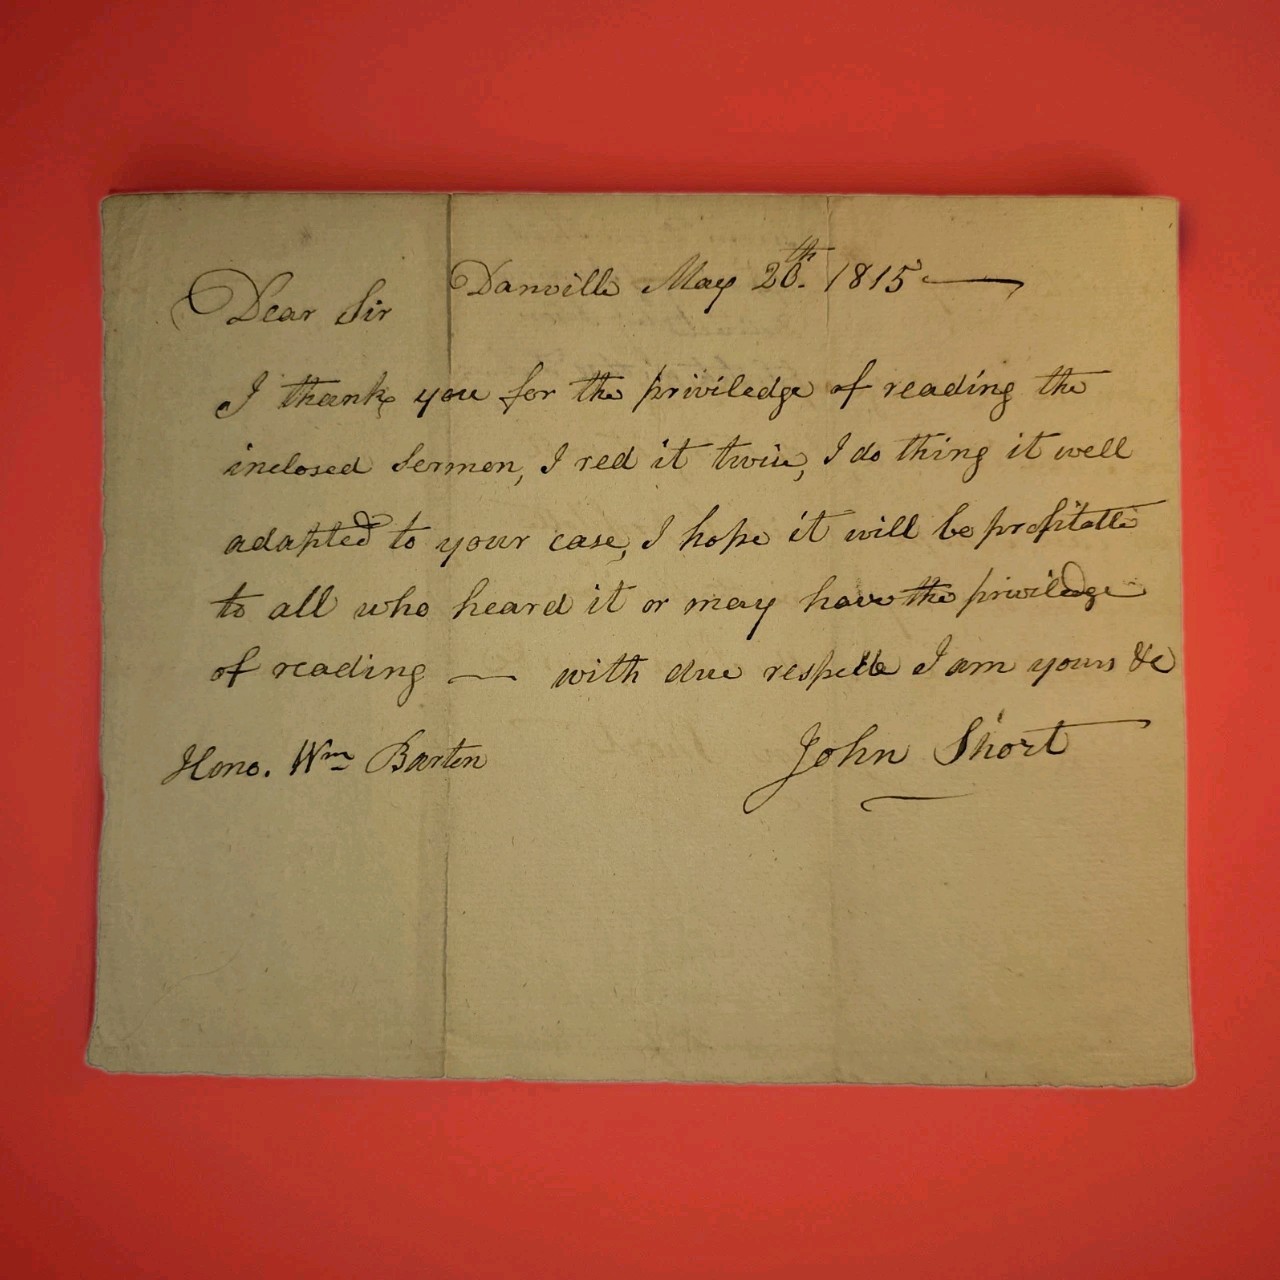 Danville May 26th. 1815
Dear Sir
I thank you for the priviledge of reading the
inclosed Sermon, I red it twice, I do thing it well
adapted to your case, I hope it will be profitable
to all who heard it or may have the priviledge
of reading — with due respects I am yours &c
Hono. Wm Barton
John Short